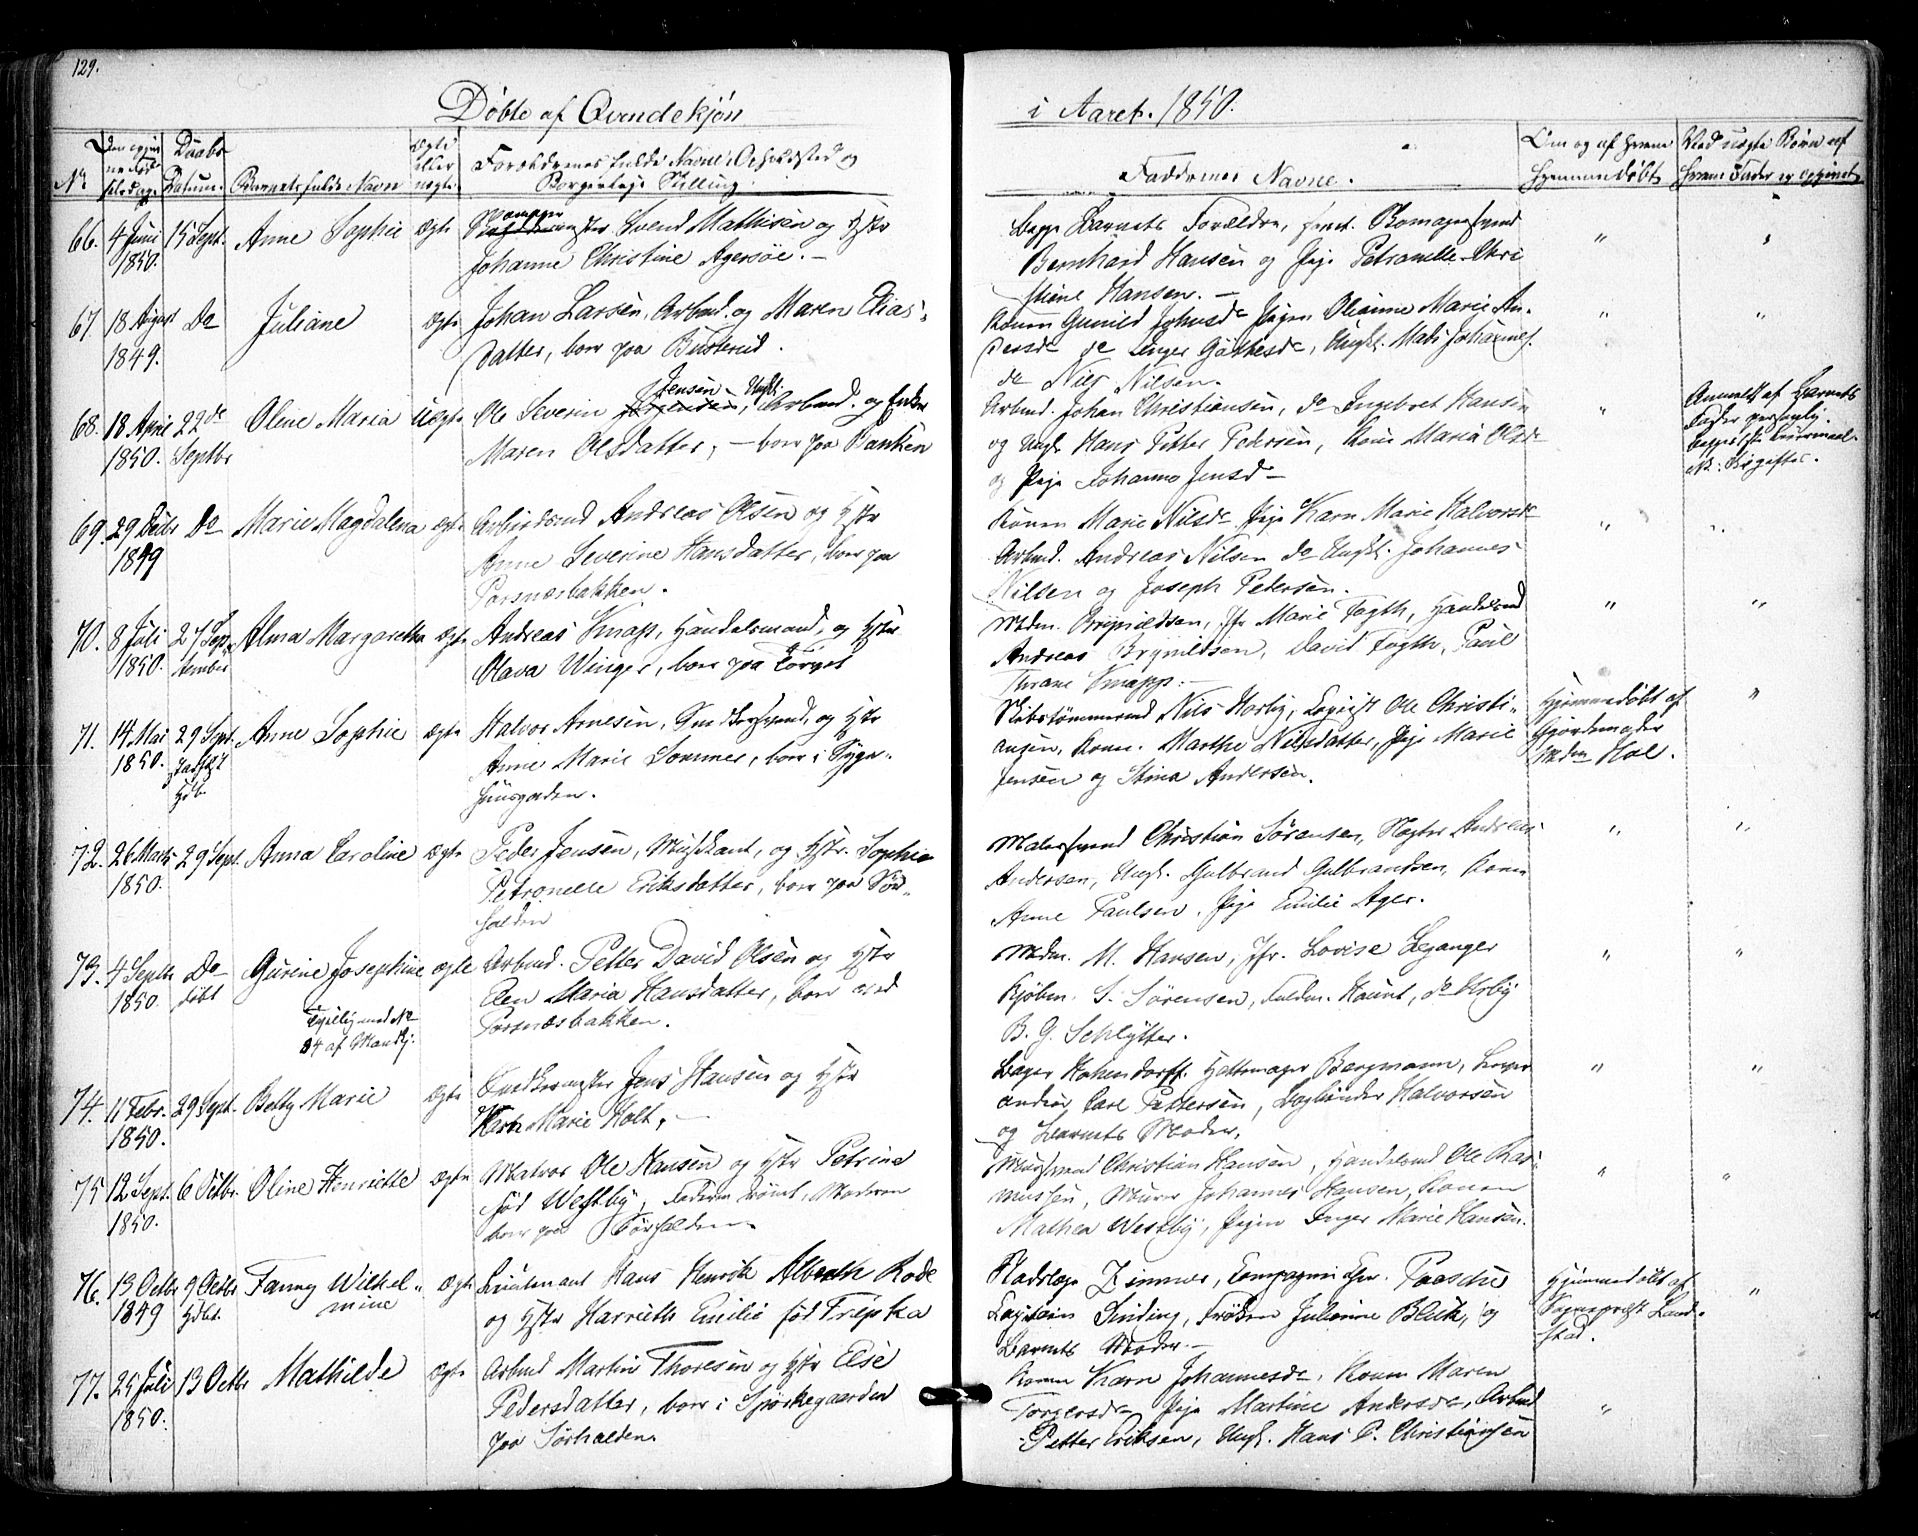 129.
Döbte af Qvindekjön
i Aaret 1850.
No
Daabs Datum
Barnets fulde Navn
ægte eller uægte
Forældrenes fulde Navne, Opholdsted og
Borgerlige Stilling
Faddernes Navne.
Om og af hvem
hjemmedöbt
Ved uægte Börn af
hvem Fader er opgivet
66. 4 Juni 1850. 15 Sept. Anne Sophie ægte
Svend Mathisen og Hstr
Johanne Christine Agersöe. —
Begge Barnets Forældre,
Bernhard Hansen og Pige Petronelle Chri
stine Hansen. —
67. 18 August 1849. Do Juliane ægte
Johan Larsen, Arbmd. og Maren Elias-
datter, boer paa Busterud.
Konen Gunild Johnsd Pigen Oleanne Marie An-
dersd do Inger Gökkesd, Ungk. Mads Johannes.
do Nils Nilsen.
68. 18 April 1850. 22de Septbr Oline Maria Uægte
Ole Severin Jensen, Ungk. Arbmd. og Enke
Maren Olsdatter, — boer paa Banken
Arbmd. Johan Christiansen, do Ingebret Hansen
og Ungk Hans Petter Pedersen, Kone Maria Olsd
og Pige Johanne Jensd
Anmeldt af Barnets
Fader personlig
69. 29 Decbr 1849 Do Marie Magdalena ægte
Arbeidsmd Andreas Olsen og Hstr
Anne Severine Hansdatter, boer paa
Porsnæsbakken.
Konen Marie Nilsd Pige Karn Marie Halvorsd
Arbmd. Andreas Nilsen do Ungk. Johannes
Nilsen og Joseph Petersen.
70. 8 Juli 1850. 27 Sep-
tember Alma Margaretha ægte
Andreas Knap, Handelsmand, og Hstr
Olava Winger, boer paa Torvet
Mdm. Brynildsen, Jfr Marie Fogth, Handelsmd
Andreas Brynildsen, David Fogth, Paul
Thrane Knapp. —
71. 14 Mai 1850. 29 Sept. Anne Sophie ægte
Halvor Arnesen, Snedkersvend, og Hstr
Anne Marie Sommer, boer i Syge-
huusgaarden.
Skibstömmermd Nils Horby, Logist Ole Christi-
ansen, Konen Marthe Nilsdatter, Pige Marie
Jensen og Stina Andersen.
Hjemmedöbt af
Gjordemoder
Madm Hol.
72. 26 Marts 1850. 29 Sept. Anna Caroline ægte
Peder Jensen, Musikant, og Hstr. Sophie
Petronelle Eriksdatter, boer paa Sör-
halden
Malersvend Christian Sörensen, Andreas
Andersen, Ungk. Gulbrand Gulbrandsen, Konen
Anne Paulsen, Pige Emilie Ager.
73. 4 Septbr 1850. Do döbt Gurine Josephine ægte
Tvillig med No
34 af Mandkj.
Arbmd. Petter David Olsen og Hstr
Elen Maria Hansdatter, boer ved
Porsnæsbakken.
Mdm. M. Hansen, Jfr. Lovise Leganger
Kjöbm. S. Sörensen, do Urbÿ
B. G. Schlytter.
74. 11 Febr. 1850. 29 Sept. Betty Marie ægte
Snedkermester Jens Hansen og Hstr
Karen Marie Holt, —
Bager Hohendorff, Hattemager Bergmann,
Carl Pettersen, Bogbinder Halvorsen
og Barnets Moder.
75 12 Sept. 1850. 6 Octbr. Oline Henriette ægte
Matros Ole Hansen og Hstr Petrine
föd Westby, Faderen römt, Moderen
boer paa Sörhalden.
Christian Hansen, Handelsmd Ole Ras-
mussen, Murer Johannes Hansen, Konen
Mathea Westby, Pigen Inger Marie Hansen.
76. 13 Octbr 1849 9 Octbr Hdbt. Fanny Wilhel-
mine ægte
Lieutenant Hans Henrik Albreth Rode
og Hstr Harrieth Emilie föd Trepka
Stadslæge Zimmer, Compagnichir. Paaschе
Capitain Sinding, Fröken Julianne Blich, og
Barnets Moder. —
Hjemmedöbt af
Sogneprest Land-
stad.
77. 25 Juli 1850. 13 Octbr Mathilde ægte
Arbmd Martin Thoresen og Hstr Else
Pedersdatter, boer i Spörkegaarden
paa Sörhalden.
Konen Karn Johannesd, Konen Maren
Torgersd Pige Martine Andersd, Arbmd
Petter Eriksen, Ungk. Hans P. Christiansen